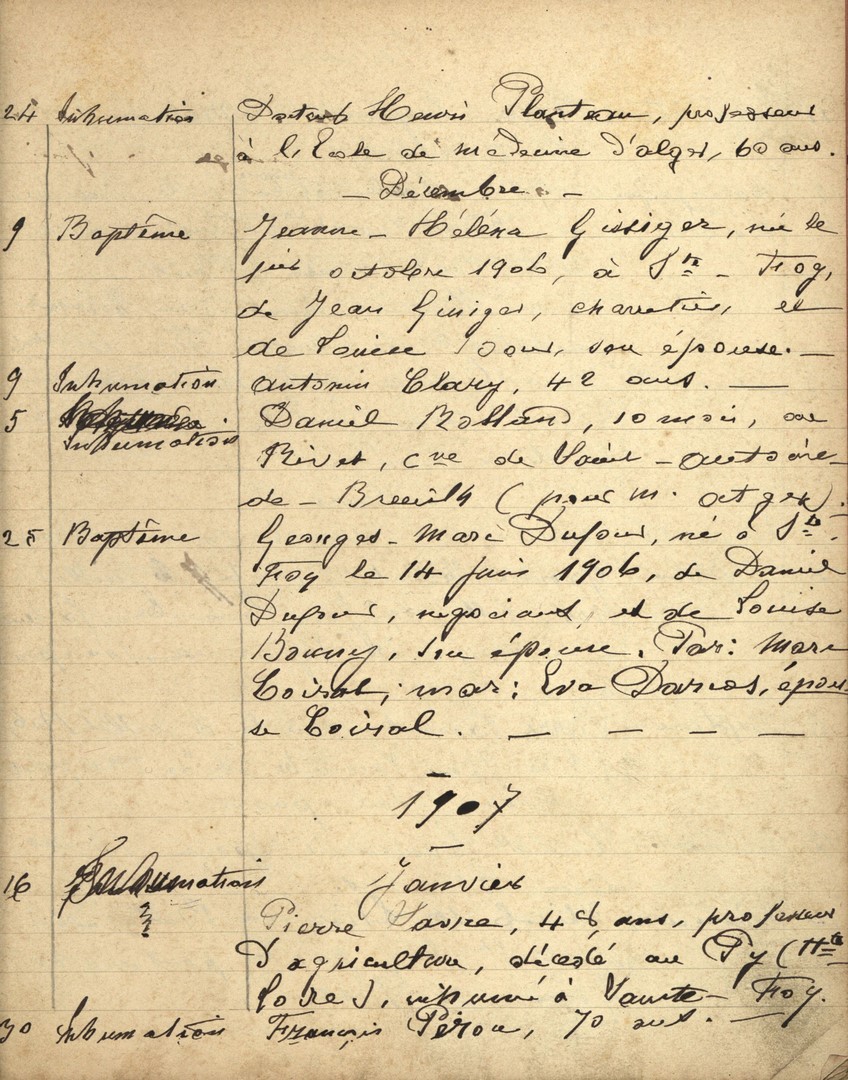 24 Inhumation Docteur Henri Planteau, professeur
à l'Ecole de médecine d'Alger, 60 ans.
– Décembre –
9 Baptême Jeanne-Héléna Gissiger, née le
1er octobre 1906, à Ste-Foy,
de Jean Gissiger, charretier, et
de Louise son épouse. –
9 Inhumation Antonin Clary, 42 ans. –
5 Inhumation Daniel Rolland, 10 mois, au
Rivet, cne de Saint-Antoine-
de-Breuilh (pour M. Atger).
25 Baptême Georges-Marc Dufour, né à Ste-
Foy le 14 juin 1906, de Daniel
Dufour, négociant, et de Louise
son épouse. Par: Marc
Coiral; mar: Eva Darcos, épou-
se Coiral. – – – –
1907
16 Inhumation Janvier
Pierre 48 ans, professeur
d'agriculture, décédé au Py (Hte-
Loire), inhumé à Sainte-Foy.
30 Inhumation François Pérou, 70 ans. –